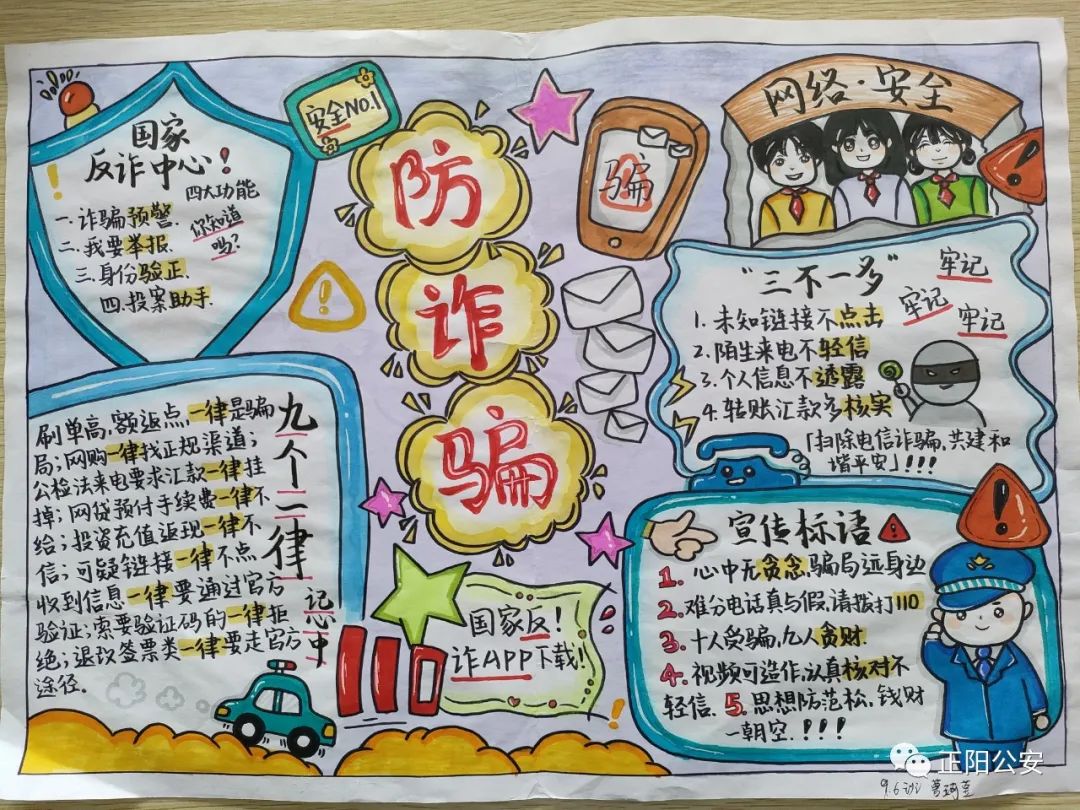 国家
反诈中心!
四大功能
一.诈骗预警.
二.我要举报.
三.身份验正.
四.投案助手.
你知道
吗?
安全NO.1
防
诈
骗
骗
网络·安全
"三不一多"
牢记
牢记
牢记
1.未知链接不点击
2.陌生来电不轻信
3.个人信息不透露
4.转账汇款多核实
「扫除电信诈骗,共建和
谐平安」!!!
九个一律
记心中
刷单高,额返点,一律是骗
局;网购一律找正规渠道;
公检法来电要求汇款一律挂
掉;网贷预付手续费一律不
给;投资充值返现一律不
信;可疑链接一律不点.
收到信息一律要通过官方
验证;索要验证码的一律拒
绝;退改签票类一律要走官方
途径.
国家反!
诈APP下载!
宣传标语
1.心中无贪念,骗局远身边
2.难分电话真与假,请拨打110
3.十人受骗,九人贪财.
4.视频可造作,认真核对不
轻信.5.思想防范松,钱财
一朝空.!!!!
正阳公安